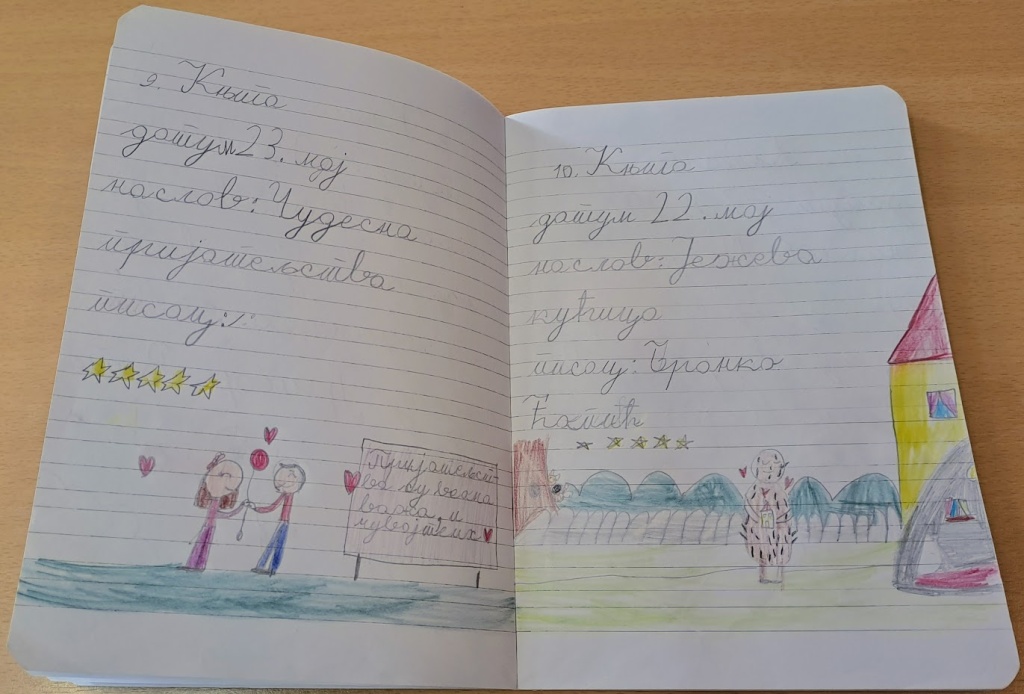 9. Књига
датум 23. мај
наслов: Чудесна
пријатељства
писац: /
Пријатељст-
ва су веома
важна и
чувајте их
10. Књига
датум 22. мај
наслов: Јежева
кућица
писац: Бранко
Ћопић